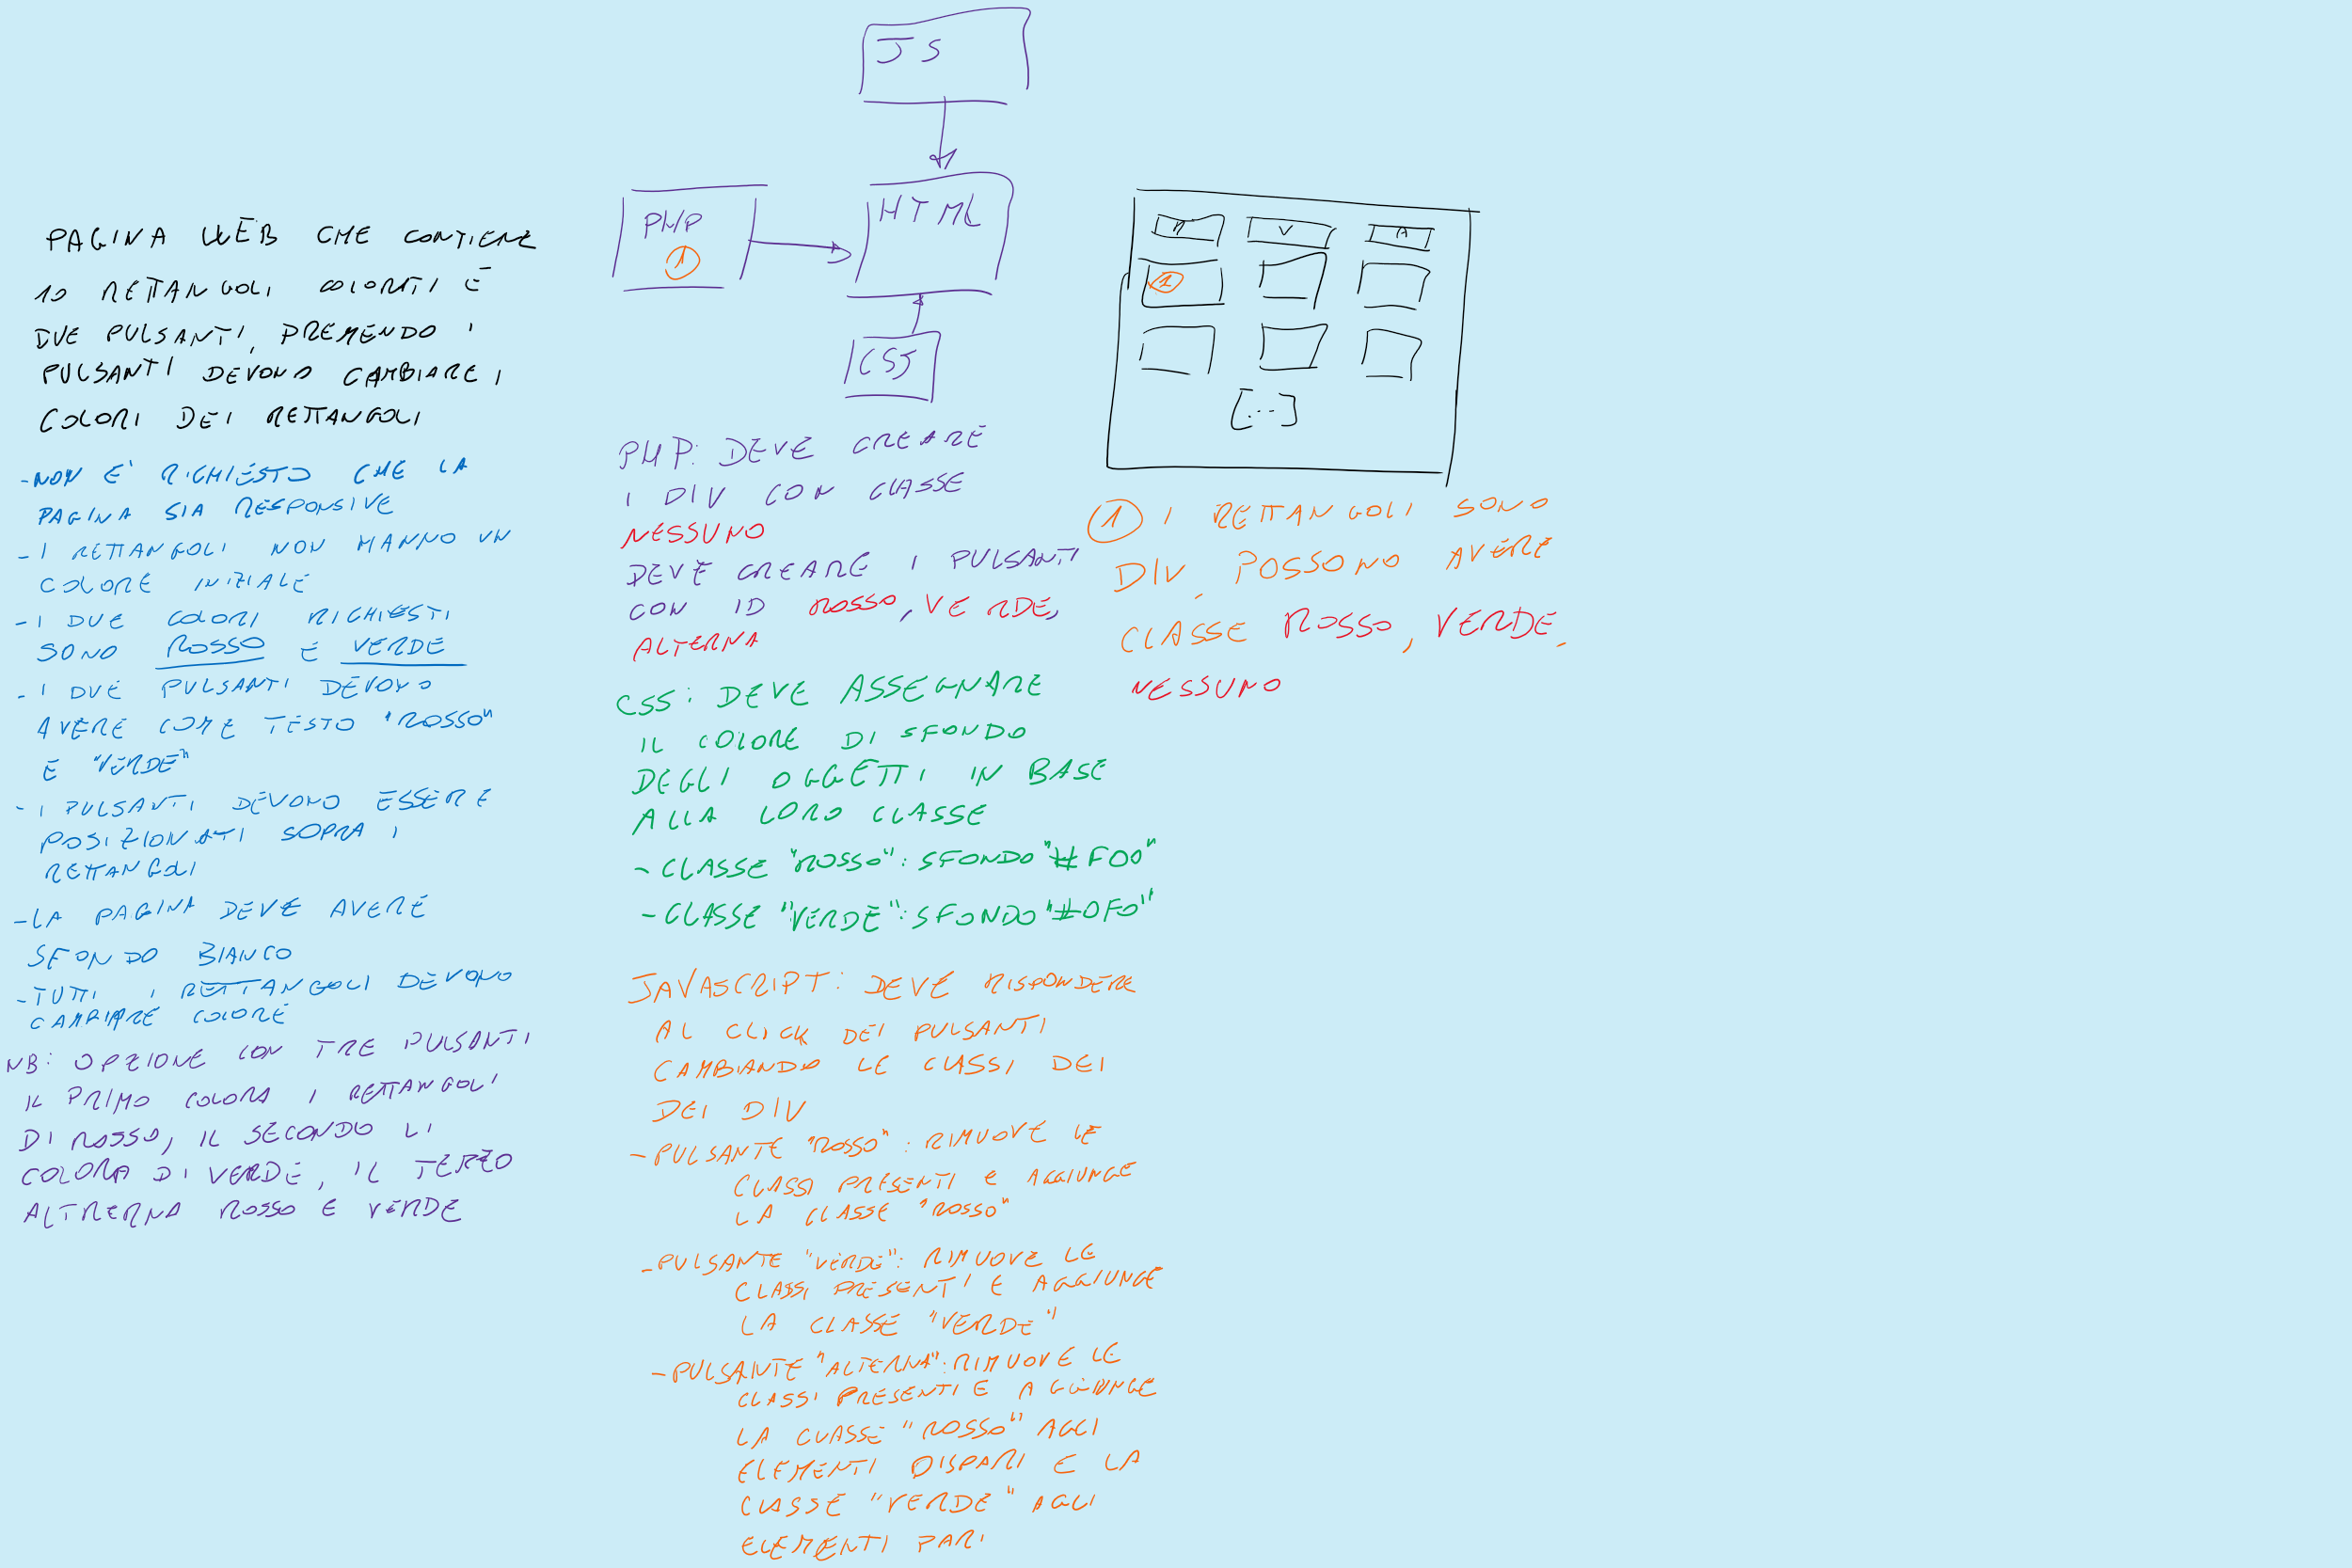 PAGINA WEB CHE CONTIENE
10 RETTANGOLI COLORATI E
DUE PULSANTI, PREMENDO I
PULSANTI DEVONO CAMBIARE I
COLORI DEI RETTANGOLI
- NON E' RICHIESTO CHE LA
PAGINA SIA RESPONSIVE
- I RETTANGOLI NON HANNO UN
COLORE INIZIALE
- I DUE COLORI RICHIESTI
SONO ROSSO E VERDE
- I DUE PULSANTI DEVONO
AVERE COME TESTO "ROSSO"
E "VERDE"
- I PULSANTI DEVONO ESSERE
POSIZIONATI SOPRA I
RETTANGOLI
- LA PAGINA DEVE AVERE
SFONDO BIANCO
- TUTTI I RETTANGOLI DEVONO
CAMBIARE COLORE
NB: OPZIONE CON TRE PULSANTI
IL PRIMO COLORA I RETTANGOLI
DI ROSSO, IL SECONDO LI
COLORA DI VERDE, IL TERZO
ALTRERNA ROSSO E VERDE
JS
PHP
1
HTML
CSS
PHP: DEVE CREARE
I DIV CON CLASSE
NESSUNO
DEVE CREARE I PULSANTI
CON ID ROSSO, VERDE,
ALTERNA
CSS: DEVE ASSEGNARE
IL COLORE DI SFONDO
DEGLI OGGETTI IN BASE
ALLA LORO CLASSE
- CLASSE "ROSSO": SFONDO "#F00"
- CLASSE "VERDE": SFONDO "#0F0"
JAVASCRIPT: DEVE RISPONDERE
AL CLICK DEI PULSANTI
CAMBIANDO LE CLASSI DEI
DEI DIV
- PULSANTE "ROSSO": RIMUOVE LE
CLASSI PRESENTI E AGGIUNGE
LA CLASSE "ROSSO"
- PULSANTE "VERDE": RIMUOVE LE
CLASSI PRESENTI E AGGIUNGE
LA CLASSE "VERDE"
- PULSANTE "ALTERNA": RIMUOVE LE
CLASSI PRESENTI E AGGIUNGE
LA CLASSE "ROSSO" AGLI
ELEMENTI DISPARI E LA
CLASSE "VERDE" AGLI
ELEMENTI PARI
R V A
1
[...]
1 I RETTANGOLI SONO
DIV, POSSONO AVERE
CLASSE ROSSO, VERDE,
NESSUNO